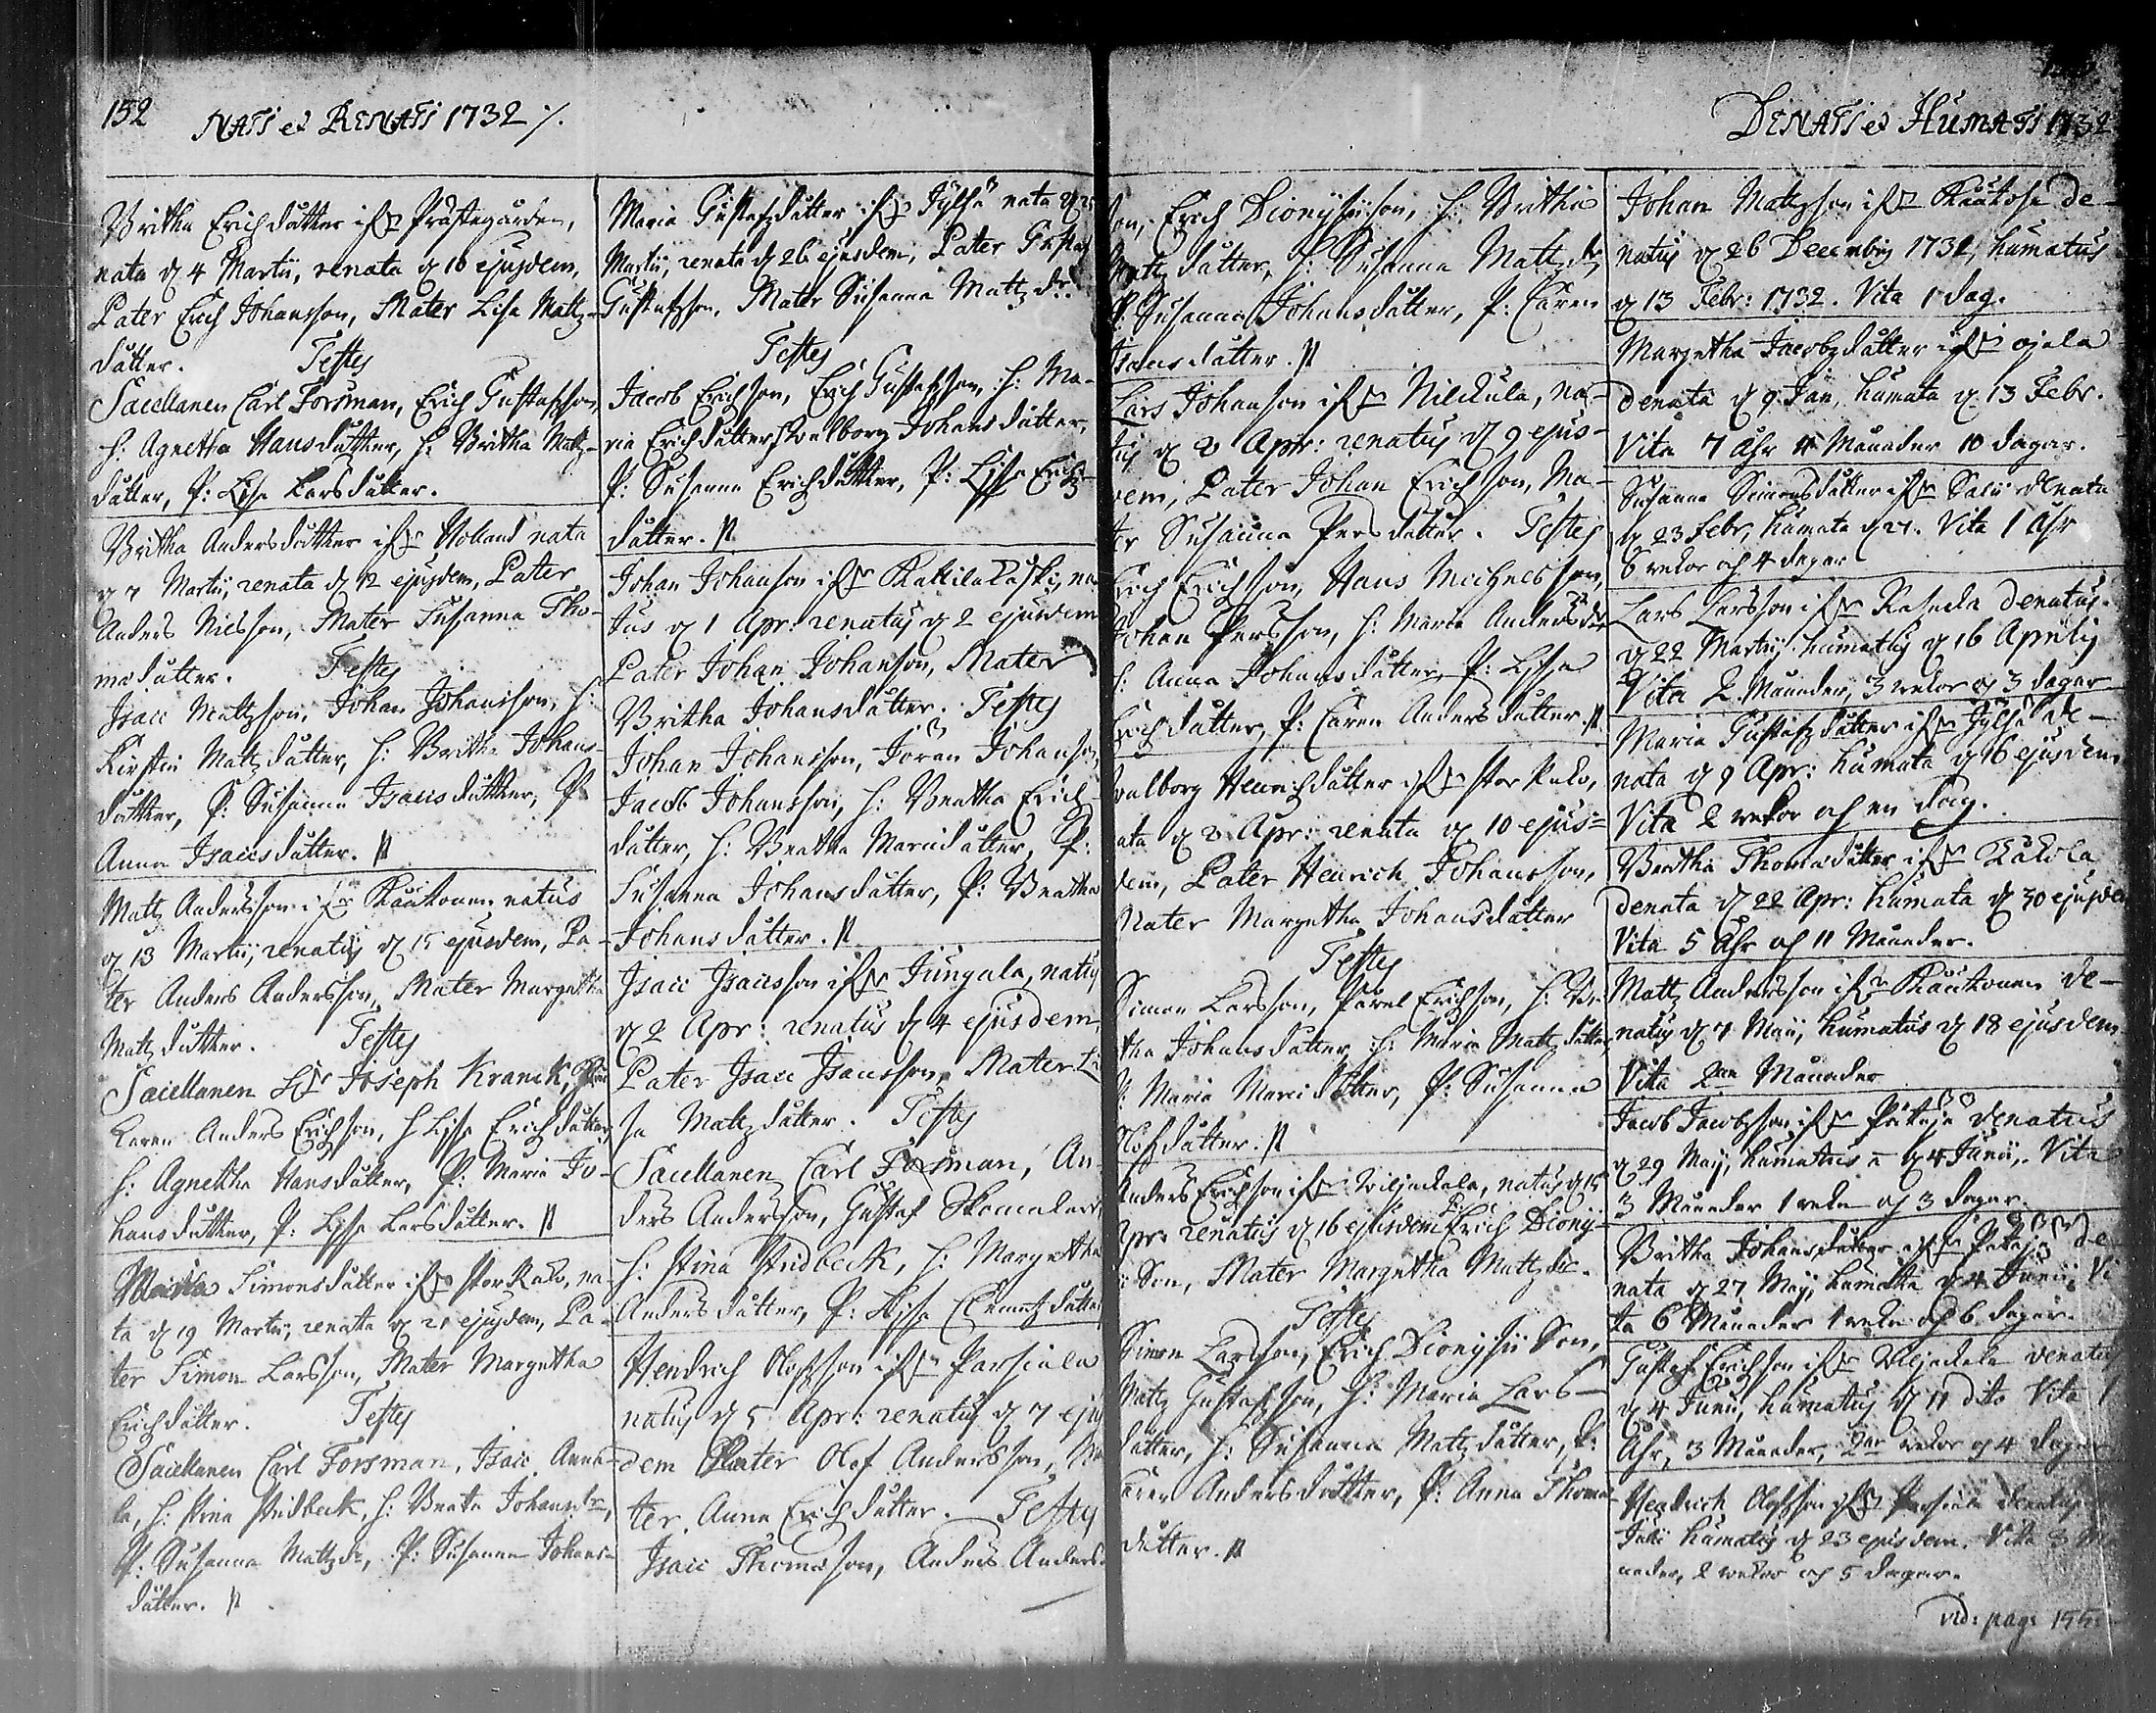 152
NATI et RENATI 1732 ⁒
Britha Erichdatter ifr Prästegården,
nata d 4 Martii, renata d 10 ejusdem,
Pater Erich Johansson, Mater Lisa Mattz-
datter. Testes
Sacellanen Carl Forsman, Erich Gustafsson,
H: Agnetha Hansdatter, H: Britha Mattz-
datter, P: Lisa Larsdatter.
Britha Andersdatter ifr Nolland nata
d 7 Martii, renata d 12 ejusdem, Pater
Anders Nilsson, Mater Susanna Tho-
madatter. Testes
Isaci Mattzson, Johan Johansson, H:
Kirstin Mattzdatter, H: Britha Johans-
datter, P: Susanna Isacsdatter, P:
Anna Isacsdatter.
Mattz Andersson ifr Kaukonen natus
d 13 Martii, renatus d 15 ejusdem, Pa-
ter Anders Andersson, Mater Margetha
Mattzdatter. Testes
Sacellanen Hr Joseph Kranck,
Karen Anders Erichson, H Lisa Erichdatter,
H: Agnetha Hansdatter, P: Maria Jo-
hansdatter, P: Lisa Larsdatter.
Simonsdatter ifr storKulo, na-
ta d 19 Martii, renata d 21 ejusdem, Pa-
ter Simon Larsson, Mater Margetha
Erichdatter. Testes
Sacellanen Carl Forsman, Isaic Anna-
la, H: Stina Stidbeck, H: Beata Johansdr,
P: Susanna Mattzdr, P: Susanna Johans-
datter.
Maria Gustafzdatter ifr Jylhä nata d 25
Martii, renata d 26 ejusdem, Pater Gustaf
Gustafsson, Mater Susanna Mattzdr.
Testes
Jacob Erichson, Erich Gustafsson, H: Ma-
ria Erichdatter, Walborg Johansdatter,
P: Susanna Erichdatter, P: Lisa Erich-
datter.
Johan Johanson ifr Kallilakaski, na-
tus d 1 Apr: renatus d 2 ejusdem
Pater Johan Johanson, Mater
Britha Johansdatter. Testes
Johan Johansson, Jöran Johanson,
Jacob Johansson, H: Beatha Erich-
datter, H: Beatha Maridatter, P:
Susanna Johansdatter, P: Beatha
Johansdatter.
Isaic Isaicsson ifr Jungala, natus
d 2 Apr: renatus d 4 ejusdem,
Pater Isaic Isaicsson, Mater Li-
sa Mattzdatter. Testes
Sacellanen Carl Forsman, An-
ders Andersson, Gustaf Skomakare,
H: Stina Stidbeck, H: Margetha
Andersdatter, P: Lisa Clemetzdatter
Hendrich Olofsson ifr Parsiala
natus d 5 Apr: renatus d 7 ejus
dem Pater Olof Andersson, Ma
ter Anna Erichdatter. Testes
Isaic Thomason, Anders Anders-
son, Erich Dionysiison, H: Britha
Mattzdatter, H: Susanna Mattzdr
P: Susanna Johansdatter, P: Caren
Isacsdatter.
Lars Johanson ifr Nilckula, na-
tus d 2 Apr: renatus d 9 ejus-
dem, Pater Johan Erichson, Ma-
ter Susanna Persdatter. Testes
Erich Erichson, Hans Michelsson,
Johan Persson, H: Maria Andersdr
H: Anna Johansdatter, P: Lissa
Erichdatter, P: Caren Andersdatter.
Walborg Henrichdatter ifr stor Kulo,
nata d 2 Apr: renata d 10 ejus=
dem, Pater Henrich Johansson,
Mater Margetha Johansdatter
Testes
Simon Larsson, Påvel Erichson, H: Be-
atha Johansdatter, H: Maria Mattzdatter,
P: Maria Maridatter, P: Susanna
Olofsdatter.
Anders Erichson ifr Wiljackala, natus d 15
Apr: renatus d 16 ejusdem Pr: Erich Diony-
sii Son, Mater Margetha Mattzdr.
Testes
Simon Larsson, Erich Dionysii Son,
Mattz Gustafsson, H: Maria Lars-
datter, H: Susanna Mattzdatter, P:
Caren Andersdatter, P: Anna Thoma-
datter.
DENATI et HUMATI 1732
Johan Mattzson ifr Kaukola de-
natus d 26 Decembris 1731, humatus
d 13 Febr: 1732. Vita 1 dag.
Margetha Jacobzdatter ifr ojala
denata d 9 Jan, humata d 13 Febr.
Vita 7 åhr 4 Månader 10 dagar.
Susanna Simonsdatter ifr Salu denata
d 23 Febr, humata d 27. Vita 1 åhr
6 wekor och 4 dagar
Lars Larsson ifr Rahula denatus
d 22 Martii humatus d 16 Aprilis
Vita 2 Månader, 3 wekor och 3 dagar
Maria Gustafzdatter ifr Jylhä de-
nata d 9 Apr: humata d 16 ejusdem
Vita 2 wekor och en dag.
Beatha Thomadatter ifr Kukola
denata d 22 Apr: humata d 30 ejusdem
Vita 5 åhr och 11 Månader.
Mattz Andersson ifr Kaukonen de-
natus d 7 Maii, humatus d 18 ejusdem
Vita 2ne Månader
Jacob Jacobzson ifr denatus
d 29 Maij, humatus d 4 Junii, Vita
3 Månader 1 weka och 3 dagar.
Britha Johansdatter ifr de-
nata d 27 Maij, humatha d 4 Junii, Vi
ta 6 Månader 1 weka och 6 dagar.
Gustaf Erichson ifr Wiljackala denatus
d 4 Junii, humatus d 11 dito Vita 1
åhr, 3 Månader, 2ne wekor och 4 dagar
Hendrich Olofsson ifr Parsiala denatus
Julii humatus d 23 ejusdem. Vita 3 Må-
nader, 2 wekor och 5 dagar.
vid: pag: 155